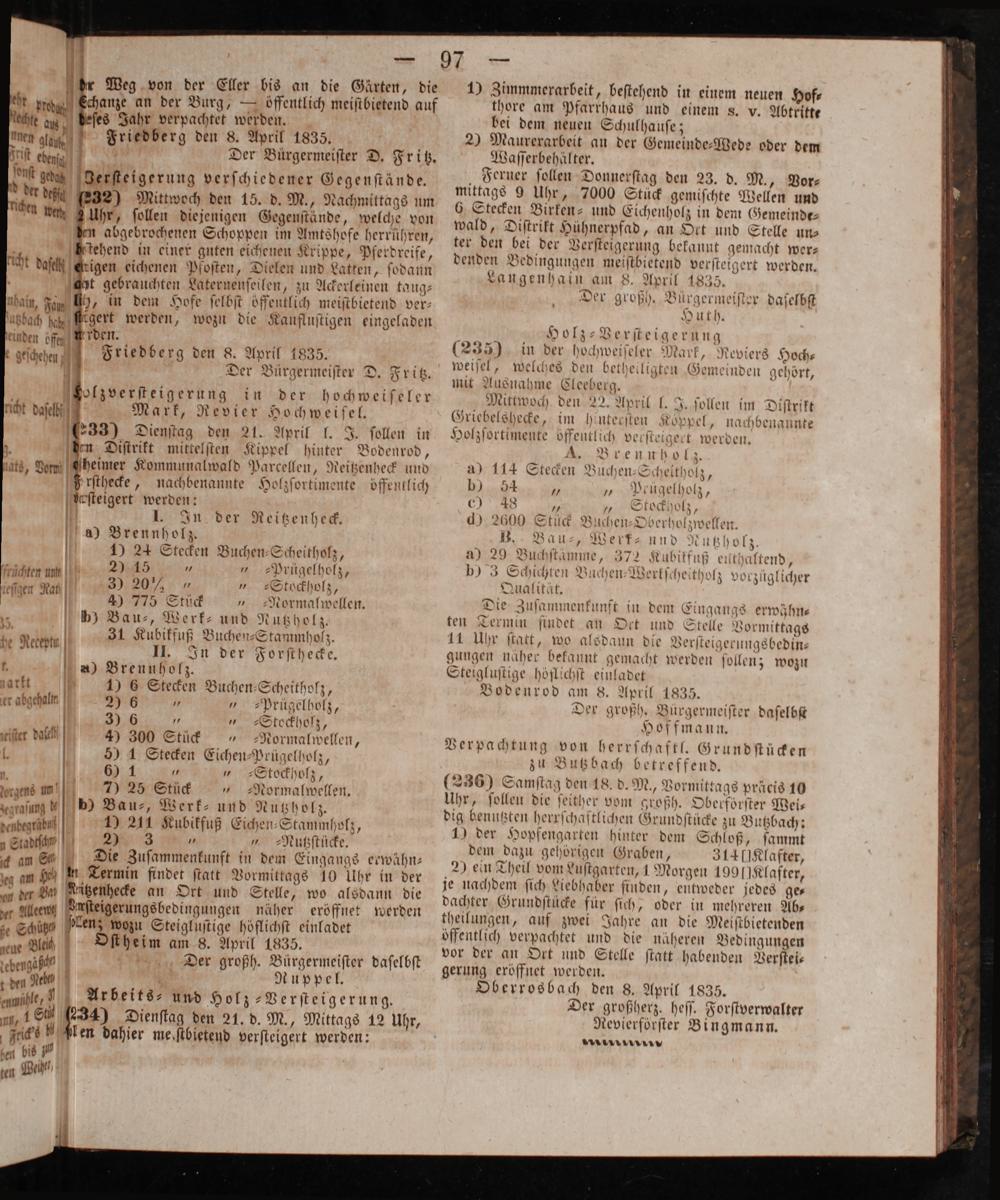 — 97 —
der Weg von der Eller bis an die Gärten, die
Schanze an der Burg, — öffentlich meistbietend auf
dieses Jahr verpachtet werden.
Friedberg den 8. April 1835.
Der Bürgermeister D. Fritz.
Versteigerung verschiedener Gegenstände.
(232) Mittwoch den 15. d. M., Nachmittags um
2 Uhr, sollen diejenigen Gegenstände, welche von
den abgebrochenen Schoppen im Amtshofe herrühren,
bestehend in einer guten eichenen Krippe, Pferdreife,
einigen eichenen Pfosten, Dielen und Latten, sodann
acht gebrauchten Laternenseilen, zu Ackerleinen taug-
lich, in dem Hofe selbst öffentlich meistbietend ver-
steigert werden, wozu die Kauflustigen eingeladen
werden.
Friedberg den 8. April 1835.
Der Bürgermeister D. Fritz.
Holzversteigerung in der hochweiseler
Mark, Revier Hochweisel.
(233) Dienstag den 21. April l. J. sollen in
den Distrikt mittelsten Kippel hinter Bodenrod,
ostheimer Kommunalwald Parcellen, Reitzenheck und
Forsthecke, nachbenannte Holzsortimente öffentlich
versteigert werden:
I. In der Reitzenheck.
a) Brennholz.
1) 24 Stecken Buchen-Scheitholz,
2) 15 „ „ -Prügelholz,
3) 20½ „ „ -Stockholz,
4) 775 Stück „ -Normalwellen.
b) Bau-, Werk- und Nutzholz.
31 Kubikfuß Buchen-Stammholz.
II. In der Forsthecke.
a) Brennholz.
1) 6 Stecken Buchen-Scheitholz,
2) 6 „ „ -Prügelholz,
3) 6 „ „ -Stockholz,
4) 300 Stück „ -Normalwellen,
5) 1 Stecken Eichen-Prügelholz,
6) 1 „ „ -Stockholz,
7) 25 Stück „ -Normalwellen.
b) Bau-, Werk- und Nutzholz.
1) 211 Kubikfuß Eichen-Stammholz,
2) 3 „ „ -Nutzstücke.
Die Zusammenkunft in dem Eingangs erwähn-
ten Termin findet statt Vormittags 10 Uhr in der
Reitzenhecke an Ort und Stelle, wo alsdann die
Versteigerungsbedingungen näher eröffnet werden
sollen; wozu Steiglustige höflichst einladet
Ostheim am 8. April 1835.
Der großh. Bürgermeister daselbst
Ruppel.
Arbeits- und Holz-Versteigerung.
(234) Dienstag den 21. d. M., Mittags 12 Uhr,
sollen dahier meistbietend versteigert werden:
1) Zimmmerarbeit, bestehend in einem neuen Hof-
thore am Pfarrhaus und einem s. v. Abtritte
bei dem neuen Schulhause;
2) Maurerarbeit an der Gemeinde-Wede oder dem
Wasserbehälter.
Ferner sollen Donnerstag den 23. d. M., Vor-
mittags 9 Uhr, 7000 Stück gemischte Wellen und
6 Stecken Birken- und Eichenholz in dem Gemeinde-
wald, Distrikt Hühnerpfad, an Ort und Stelle un-
ter den bei der Versteigerung bekannt gemacht wer-
denden Bedingungen meistbietend versteigert werden.
Langenhain am 8. April 1835.
Der großh. Bürgermeister daselbst
Huth.
Holz-Versteigerung
(235) in der hochweiseler Mark, Reviers Hoch-
weisel, welches den betheiligten Gemeinden gehört,
mit Ausnahme Cleeberg.
Mittwoch den 22. April l. J. sollen im Distrikt
Griebelshecke, im hintersten Koppel, nachbenannte
Holzsortimente öffentlich versteigert werden.
A. Brennholz.
a) 114 Stecken Buchen-Scheitholz,
b) 54 „ „ Prügelholz,
c) 48 „ „ Stockholz,
d) 2600 Stück Buchen-Oberholzwellen.
B. Bau-, Werk- und Nutzholz.
a) 29 Buchstämme, 372 Kubikfuß enthaltend,
b) 3 Schichten Buchen-Werkscheitholz vorzüglicher
Qualität.
Die Zusammenkunft in dem Eingangs erwähn-
ten Termin findet an Ort und Stelle Vormittags
11 Uhr statt, wo alsdann die Versteigerungsbedin-
gungen näher bekannt gemacht werden sollen; wozu
Steiglustige höflichst einladet
Bodenrod am 8. April 1835.
Der großh. Bürgermeister daselbst
Hoffmann.
Verpachtung von herrschaftl. Grundstücken
zu Butzbach betreffend.
(236) Samstag den 18. d. M., Vormittags präcis 10
Uhr, sollen die seither vom großh. Oberförster Wei-
dig benutzten herrschaftlichen Grundstücke zu Butzbach:
1) der Hopfengarten hinter dem Schloß, sammt
dem dazu gehörigen Graben, 314 []Klafter,
2) ein Theil vom Lustgarten, 1 Morgen 199[]Klafter,
je nachdem sich Liebhaber finden, entweder jedes ge-
dachter Grundstücke für sich, oder in mehreren Ab-
theilungen, auf zwei Jahre an die Meistbietenden
öffentlich verpachtet und die näheren Bedingungen
vor der an Ort und Stelle statt habenden Verstei-
gerung eröffnet werden.
Oberrosbach den 8. April 1835.
Der großherz. hess. Forstverwalter
Revierförster Bingmann.